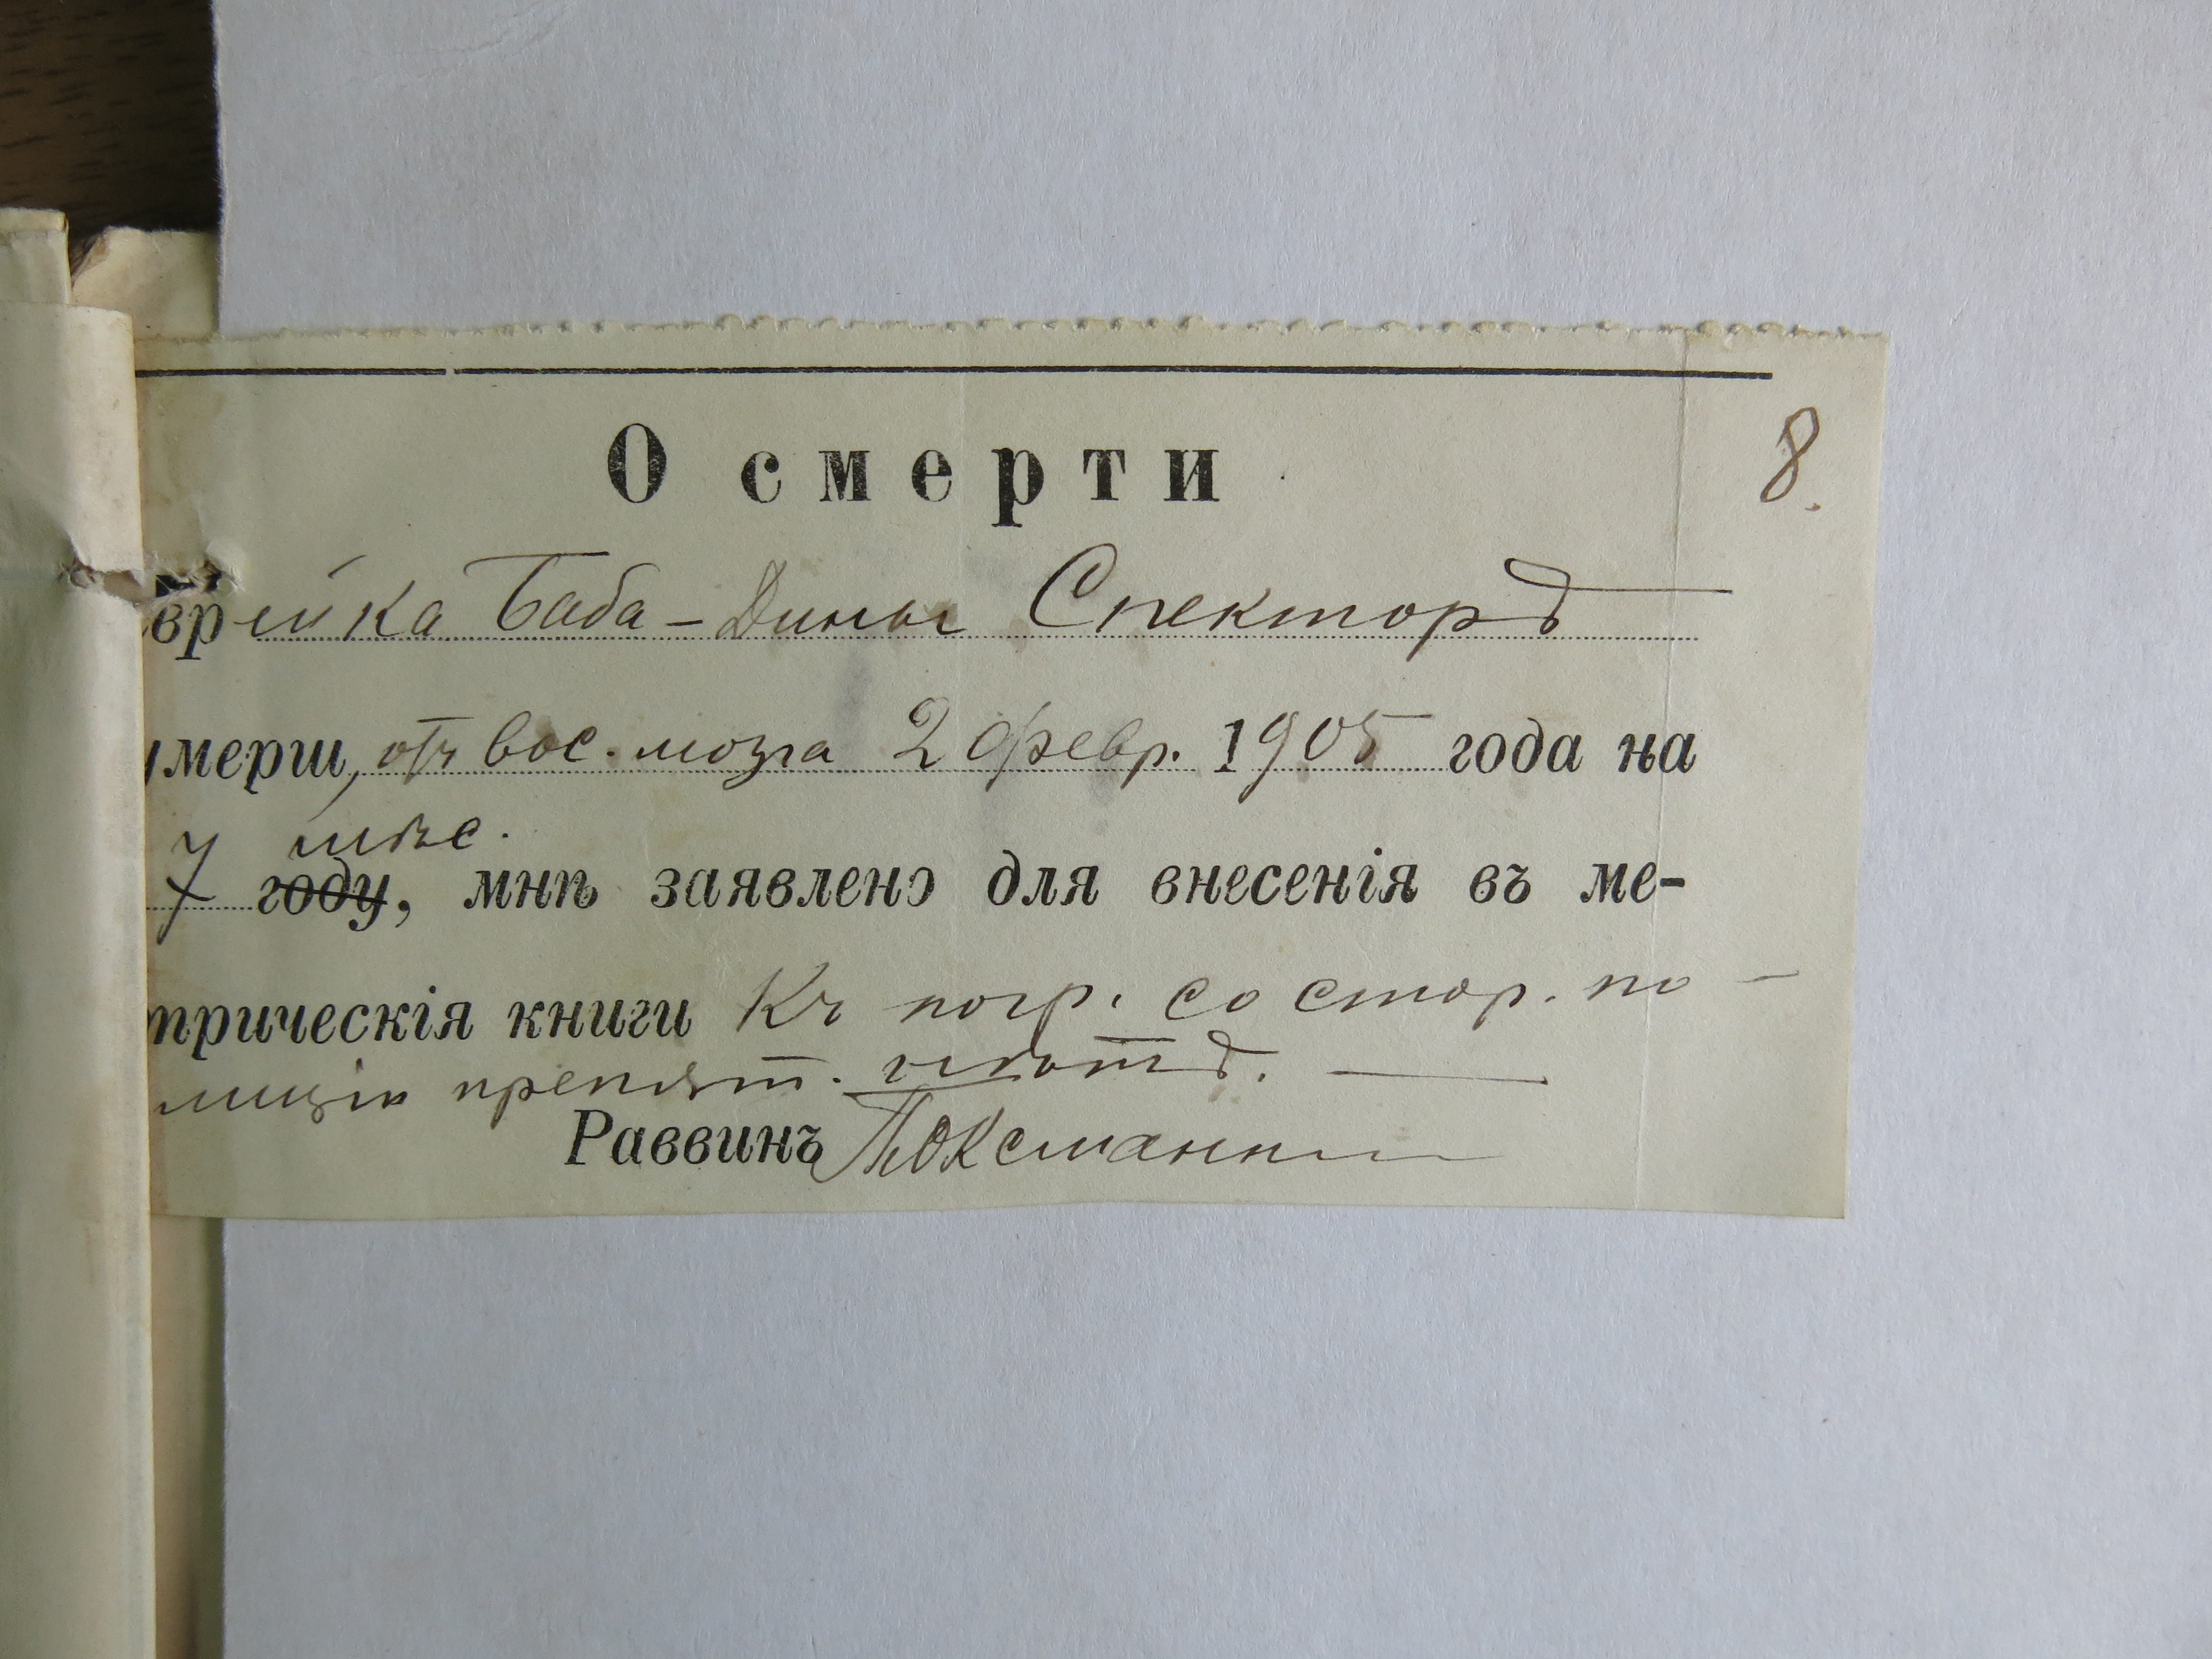 О смерти
8.
врейка Баба-Дины Спекторъ
умерш, отъ вос. мозга 2 февр. 1905 года на
7 мѣс.
году, мнѣ заявлено для внесенія въ ме-
трическія книги Къ погр. со стор. по-
лиціи препят. нѣтъ.
Раввинъ